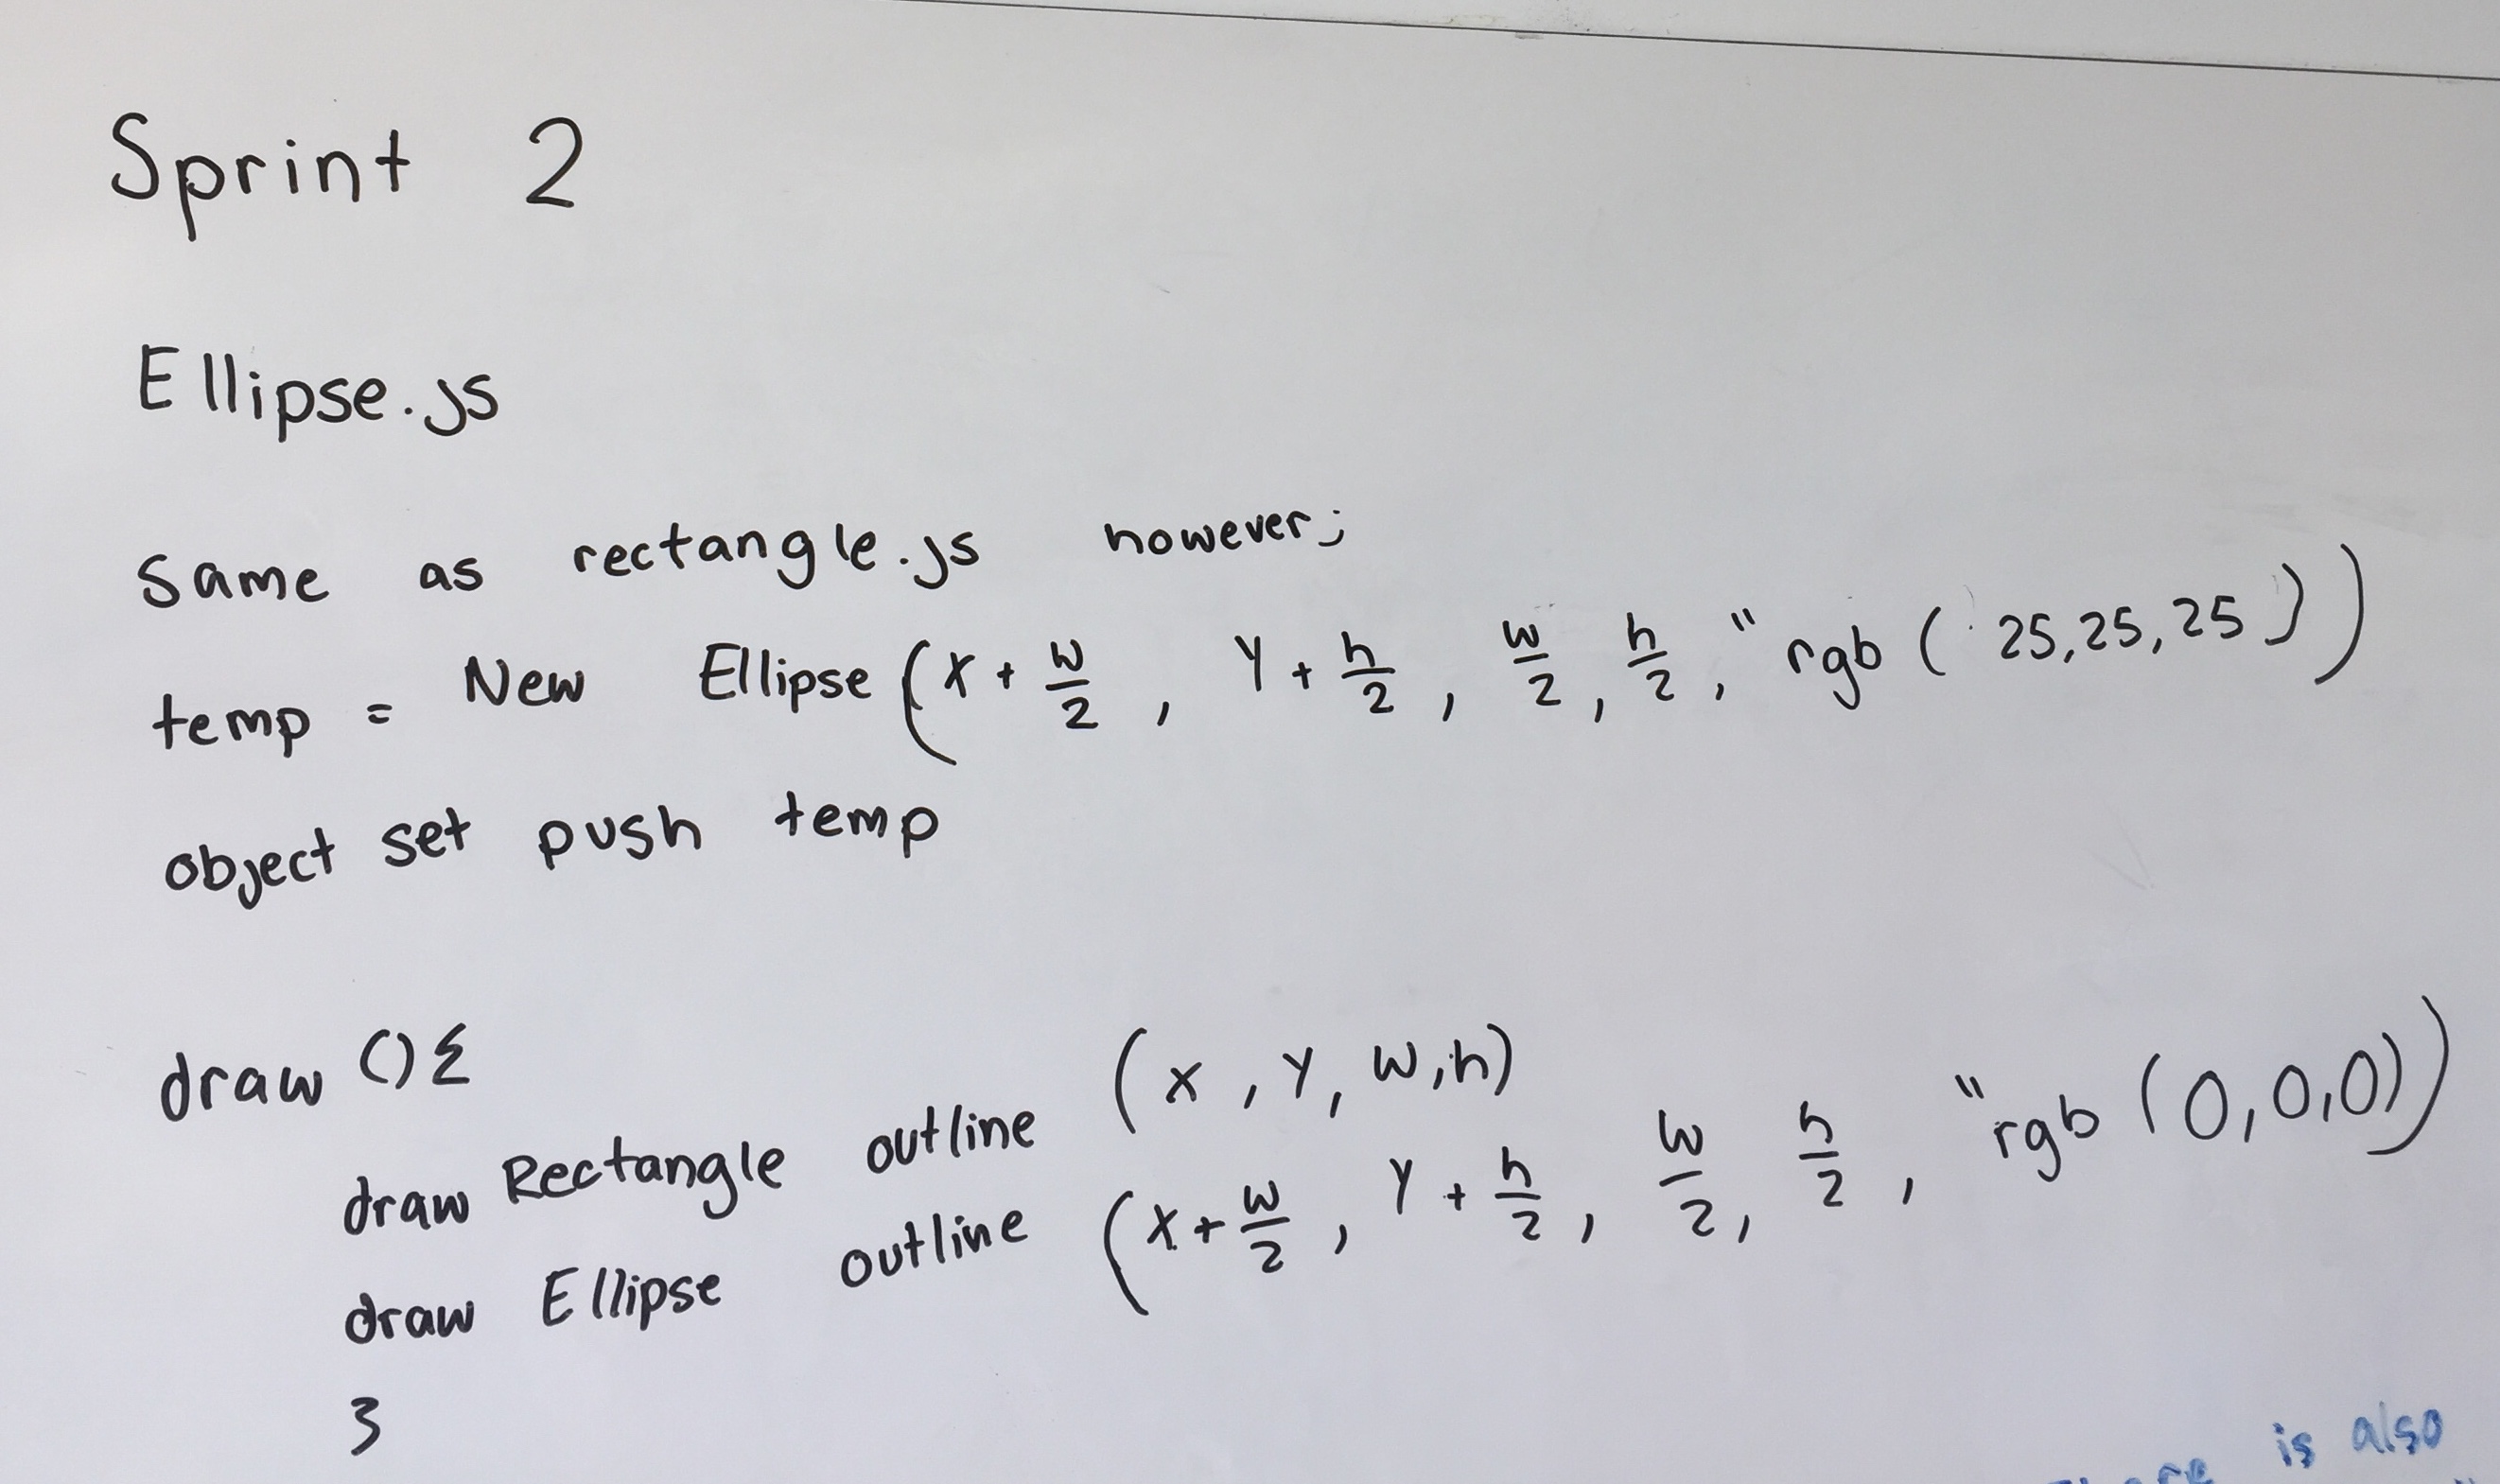 Sprint 2
Ellipse.js
Same as rectangle.js however;
temp = New Ellipse (x + w/2, y + h/2, w/2, h/2, "rgb (25,25,25))
object set push temp
draw (){
draw Rectangle outline (x, y, w, h)
draw Ellipse outline (x + w/2, y + h/2, w/2, h/2, "rgb (0,0,0))
}
is also